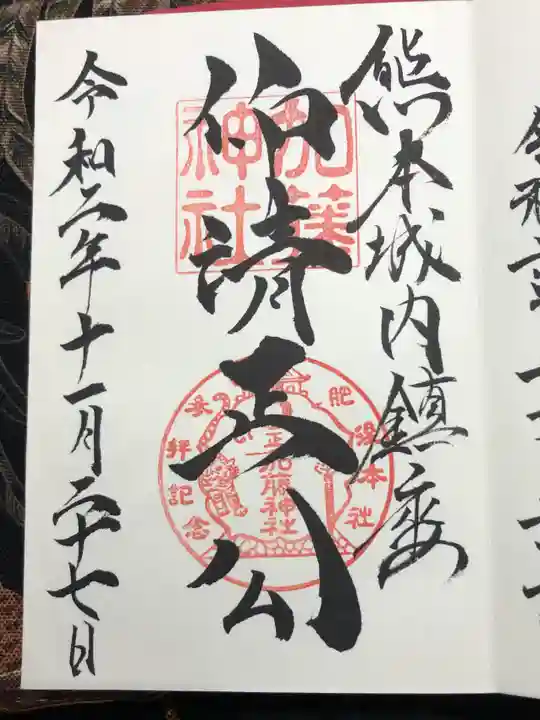 熊本城内鎮座
仰清正公
令和二年十一月二十七日
加藤
神社
肥後本社
加藤神社
参拝記念